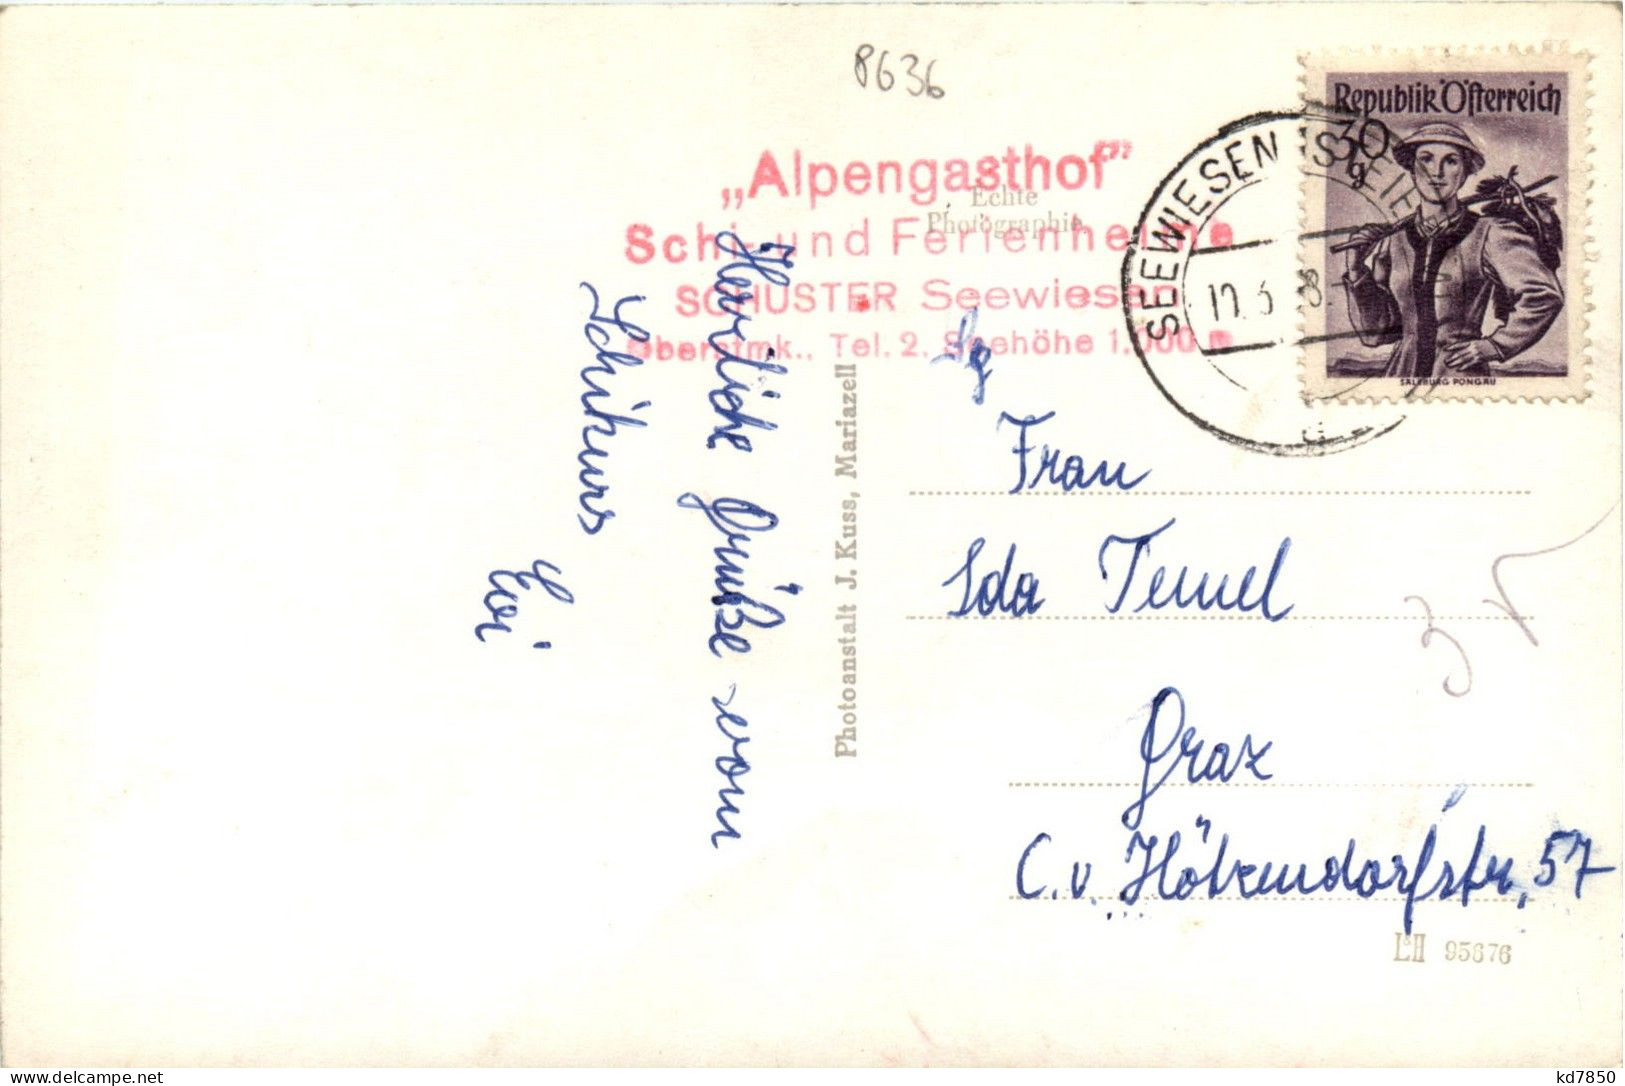 8636
„Alpengasthof”
Schi- und Ferienheime
SCHUSTER Seewiesen
Oberstmk., Tel. 2. Seehöhe 1.000 m
Echte
Photographie
Republik Österreich
30 g
SALZBURG PONGAU
SEEWIESEN
Herzliche Grüße vom
Schikurs
Evi
Photoanstalt J. Kuss, Mariazell
Sg
Frau
Ida Temel
Graz
C. v. Hötzendorfstr. 57
35
L&H 95676
kd7850